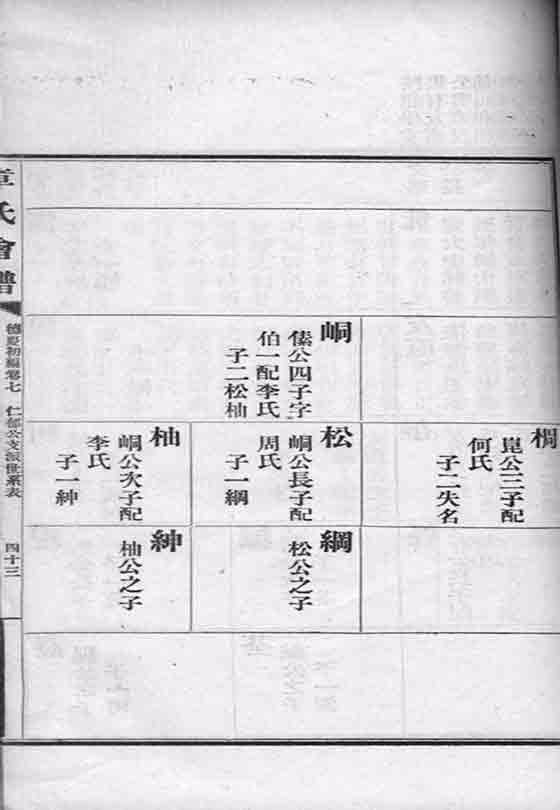 峒
僡公四子字
伯一配李氏
子二松柚
榈
崑公三子配
何氏
子二失名
松
峒公長子配
周氏
子一綱
柚
峒公次子配
李氏
子一紳
綱
松公之子
紳
柚公之子
氏會譜
德慶初編卷七 仁部公支派世系表
四十三